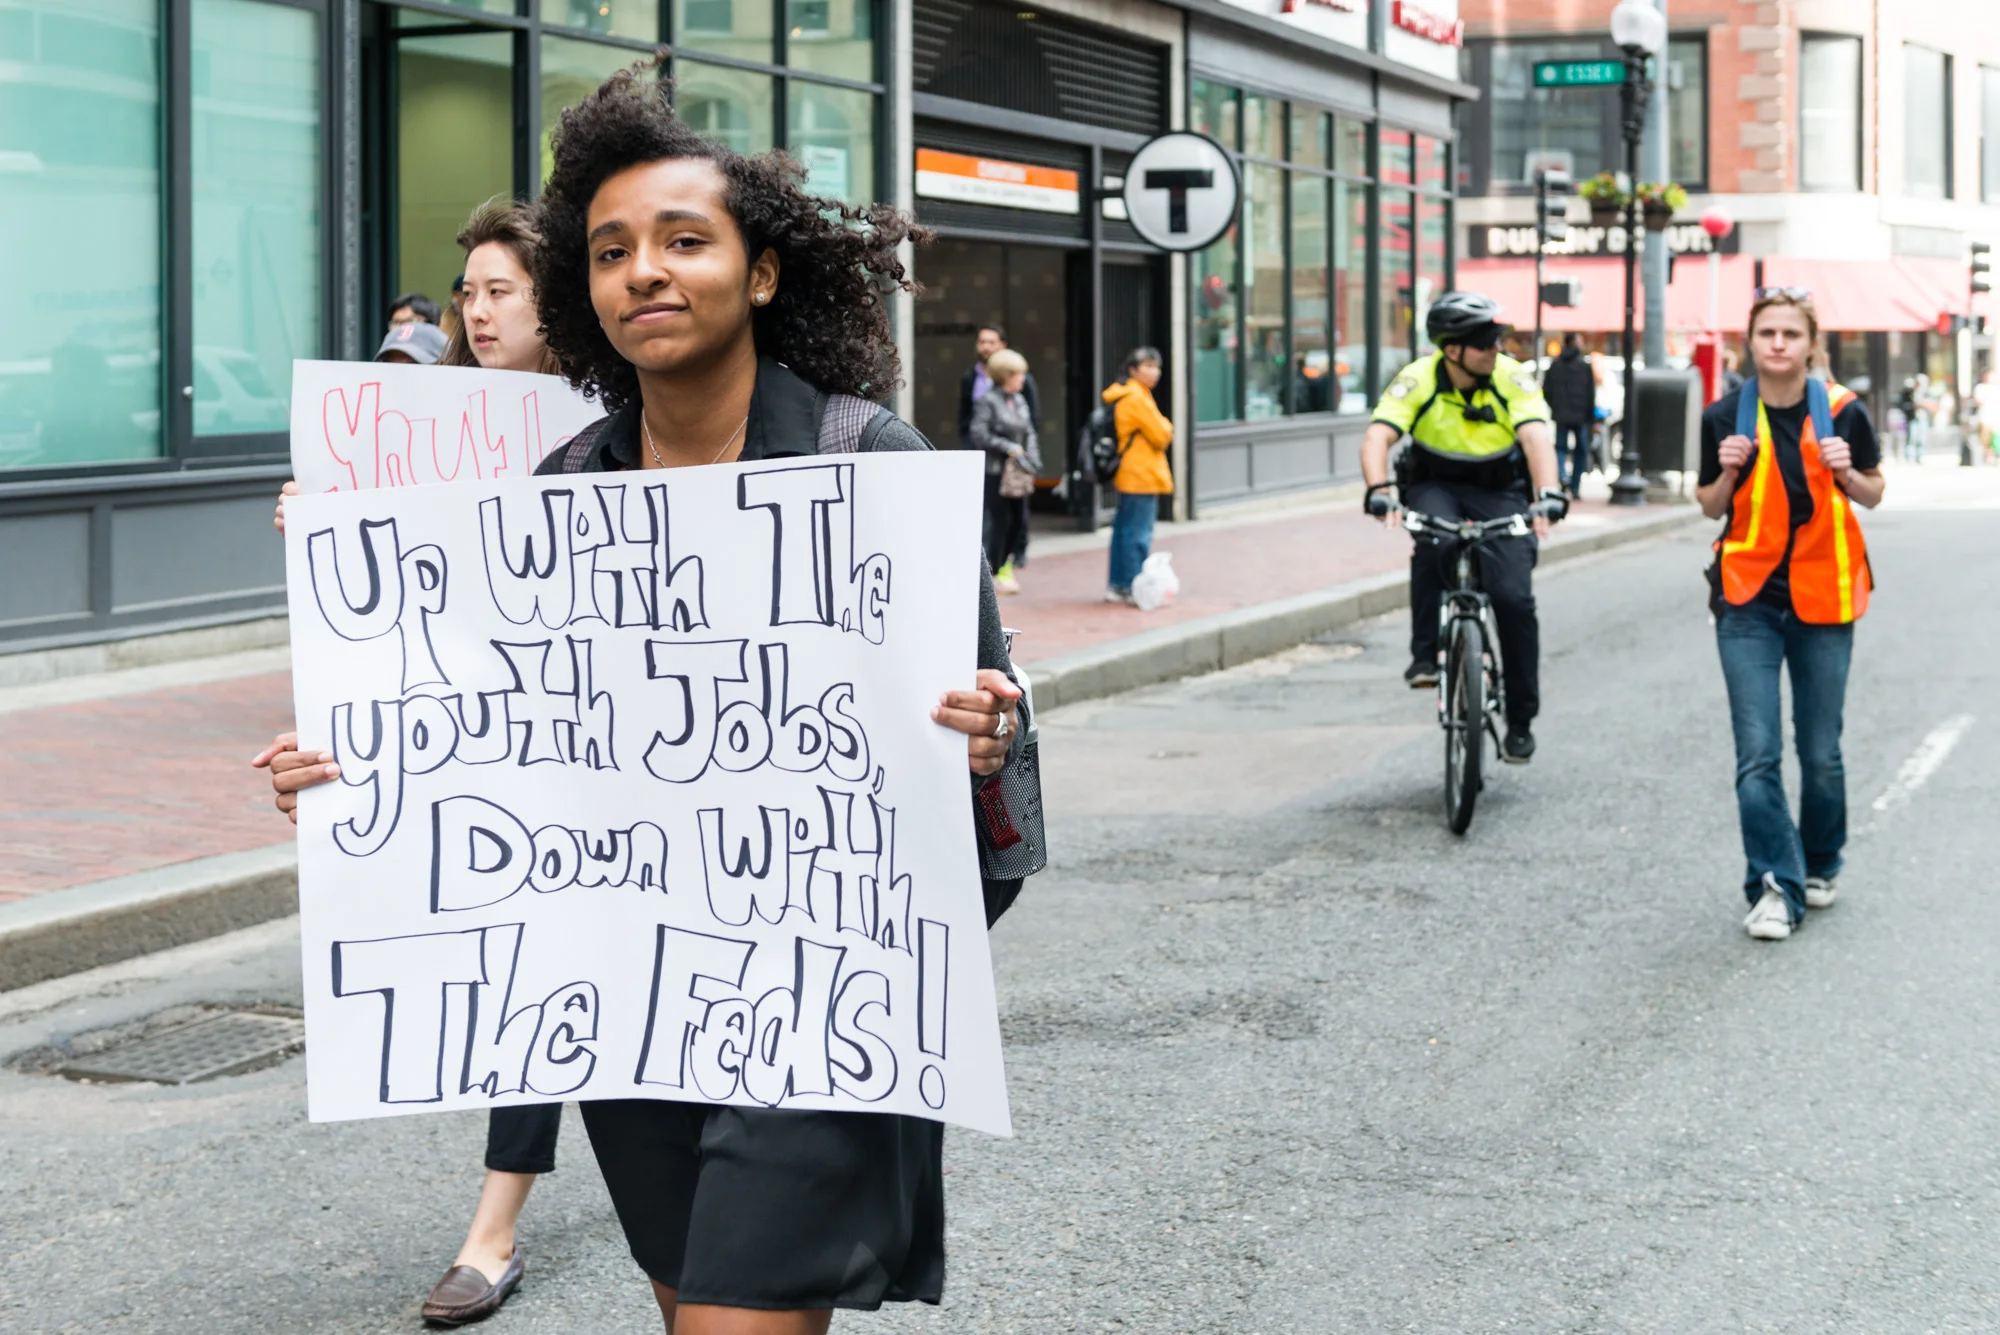 ESSEX
T
DUNKIN' DONUTS
B
Youth
Up With The
youth Jobs,
Down With
The Feds!